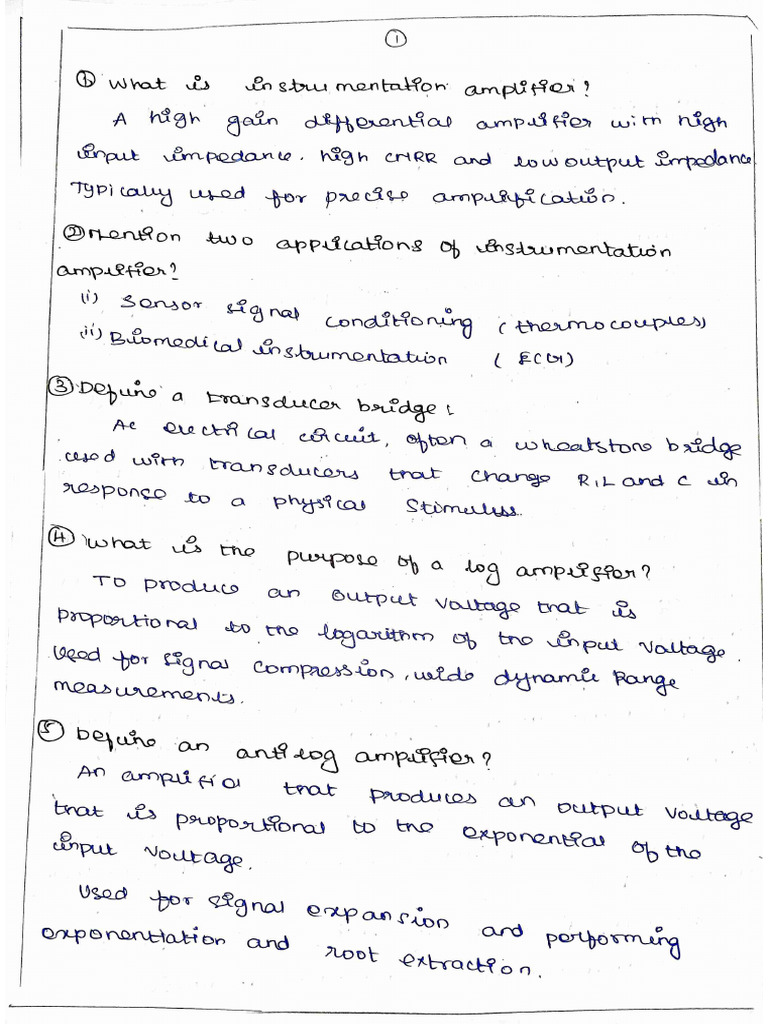 ①
① What is instrumentation amplifier?
A high gain differential amplifier with high
input impedance. high CMRR and low output impedance
Typically used for precise amplification.
② Mention two applications of instrumentation
amplifier?
(i) Sensor signal conditioning (thermocouples)
(ii) Biomedical instrumentation (ECG)
③ Define a transducer bridge:
Ae electrical circuit, often a wheatstone bridge
used with transducers that change R,L and C in
response to a physical Stimulus.
④ What is the purpose of a log amplifier?
To produce an output voltage that is
proportional to the logarithm of the input Voltage.
Used for signal compression, wide dynamic Range
measurements.
⑤ Define an antilog amplifier?
An amplifier that produces an output voltage
that is proportional to the exponential of the
input voltage.
Used for signal expansion and performing
exponentiation and root extraction.